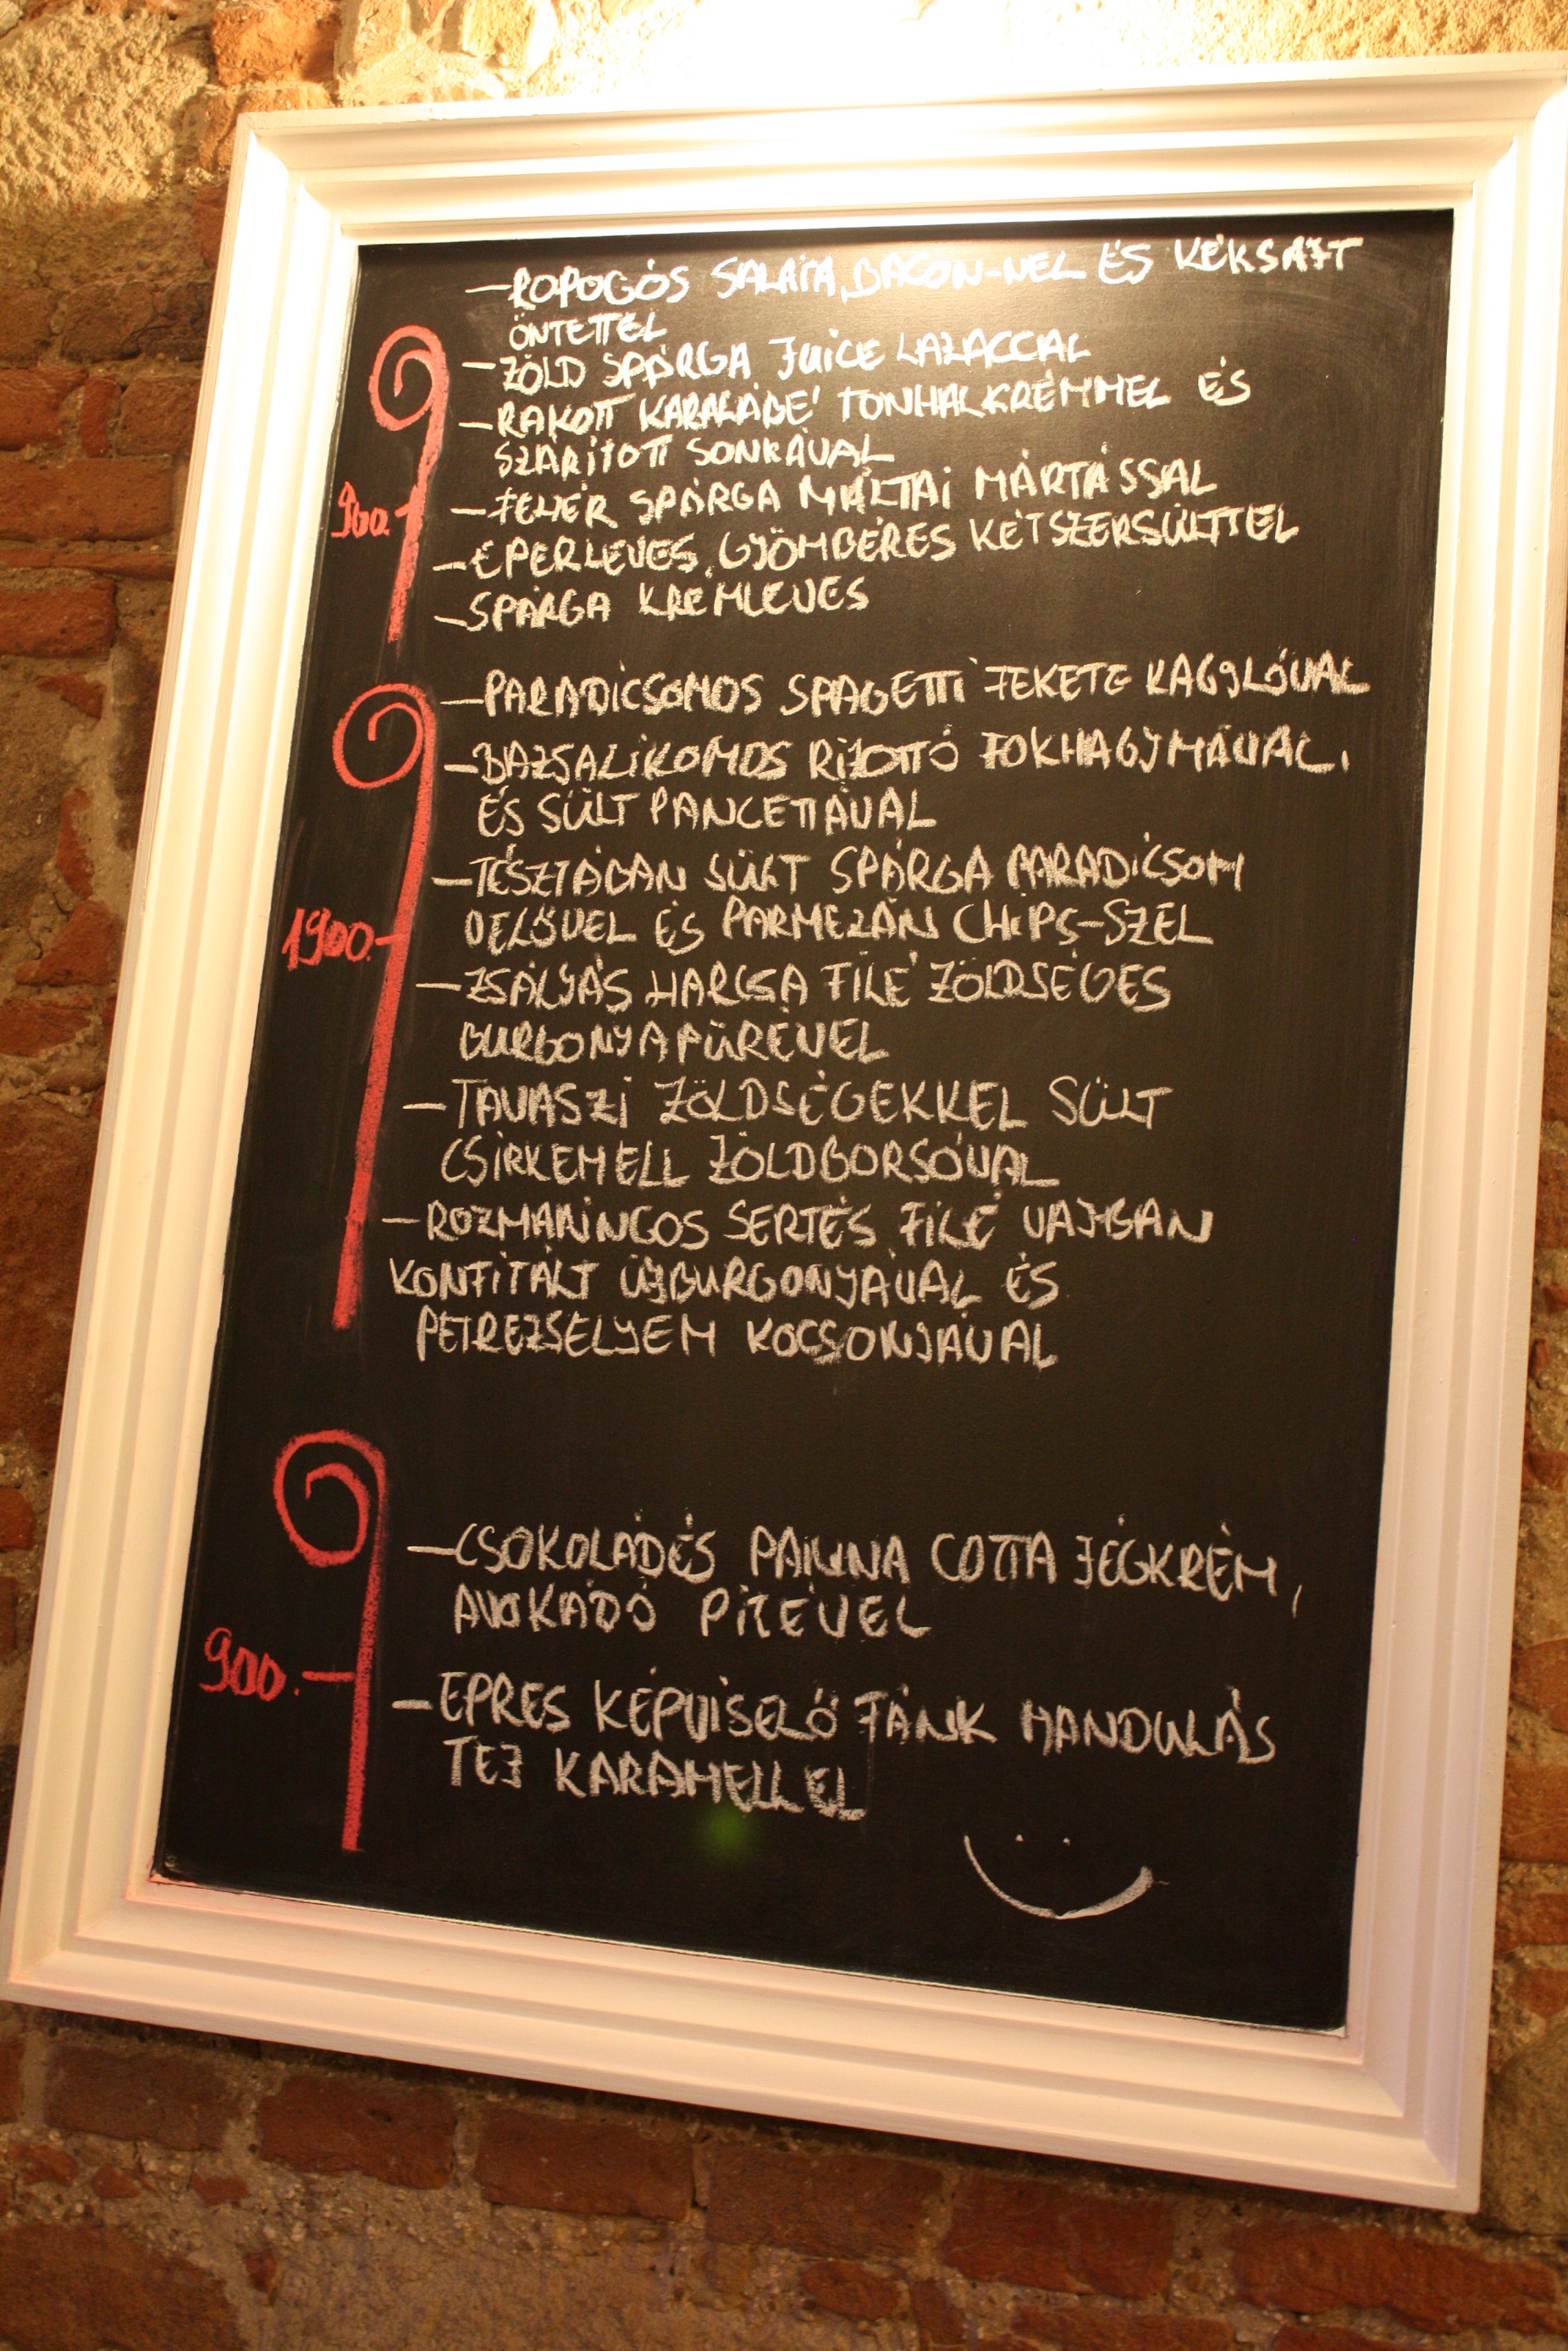 -ROPOGÓS SALÁTA, BACON-NEL ÉS KÉKSAJT
ÖNTETTEL
-ZÖLD SPÁRGA JUICE LAZACCAL
-RAKOTT KARALÁBÉ TONHALKRÉMMEL ÉS
SZÁRÍTOTT SONKÁVAL
900.-
-FEHÉR SPÁRGA MÁLTAI MÁRTÁSSAL
-EPERLEVES, GYÖMBÉRES KÉTSZERSÜLTTEL
-SPÁRGA KRÉMLEVES
-PARADICSOMOS SPAGETTI FEKETE KAGYLÓVAL
-BAZSALIKOMOS RIZOTTÓ FOKHAGYMÁVAL.
ÉS SÜLT PANCETTÁVAL
-TÉSZTÁBAN SÜLT SPÁRGA PARADICSOM
VELŐVEL ÉS PARMEZÁN CHIPS-SZEL
1900.-
-ZSÁLYÁS HARCSA FILÉ ZÖLDSÉGES
BURGONYAPÜRÉVEL
-TAVASZI ZÖLDSÉGEKKEL SÜLT
CSIRKEMELL ZÖLDBORSÓVAL
-ROZMARINGOS SERTÉS FILÉ VAJBAN
KONFITÁLT ÚJBURGONYÁVAL ÉS
PETREZSELYEM KOCSONYÁVAL
-CSOKOLÁDÉS PANNA COTTA JÉGKRÉM,
AVOKÁDÓ PITÉVEL
900.-
-EPRES KÉPVISELŐ FÁNK MANDULÁS
TEJ KARAMELLEL